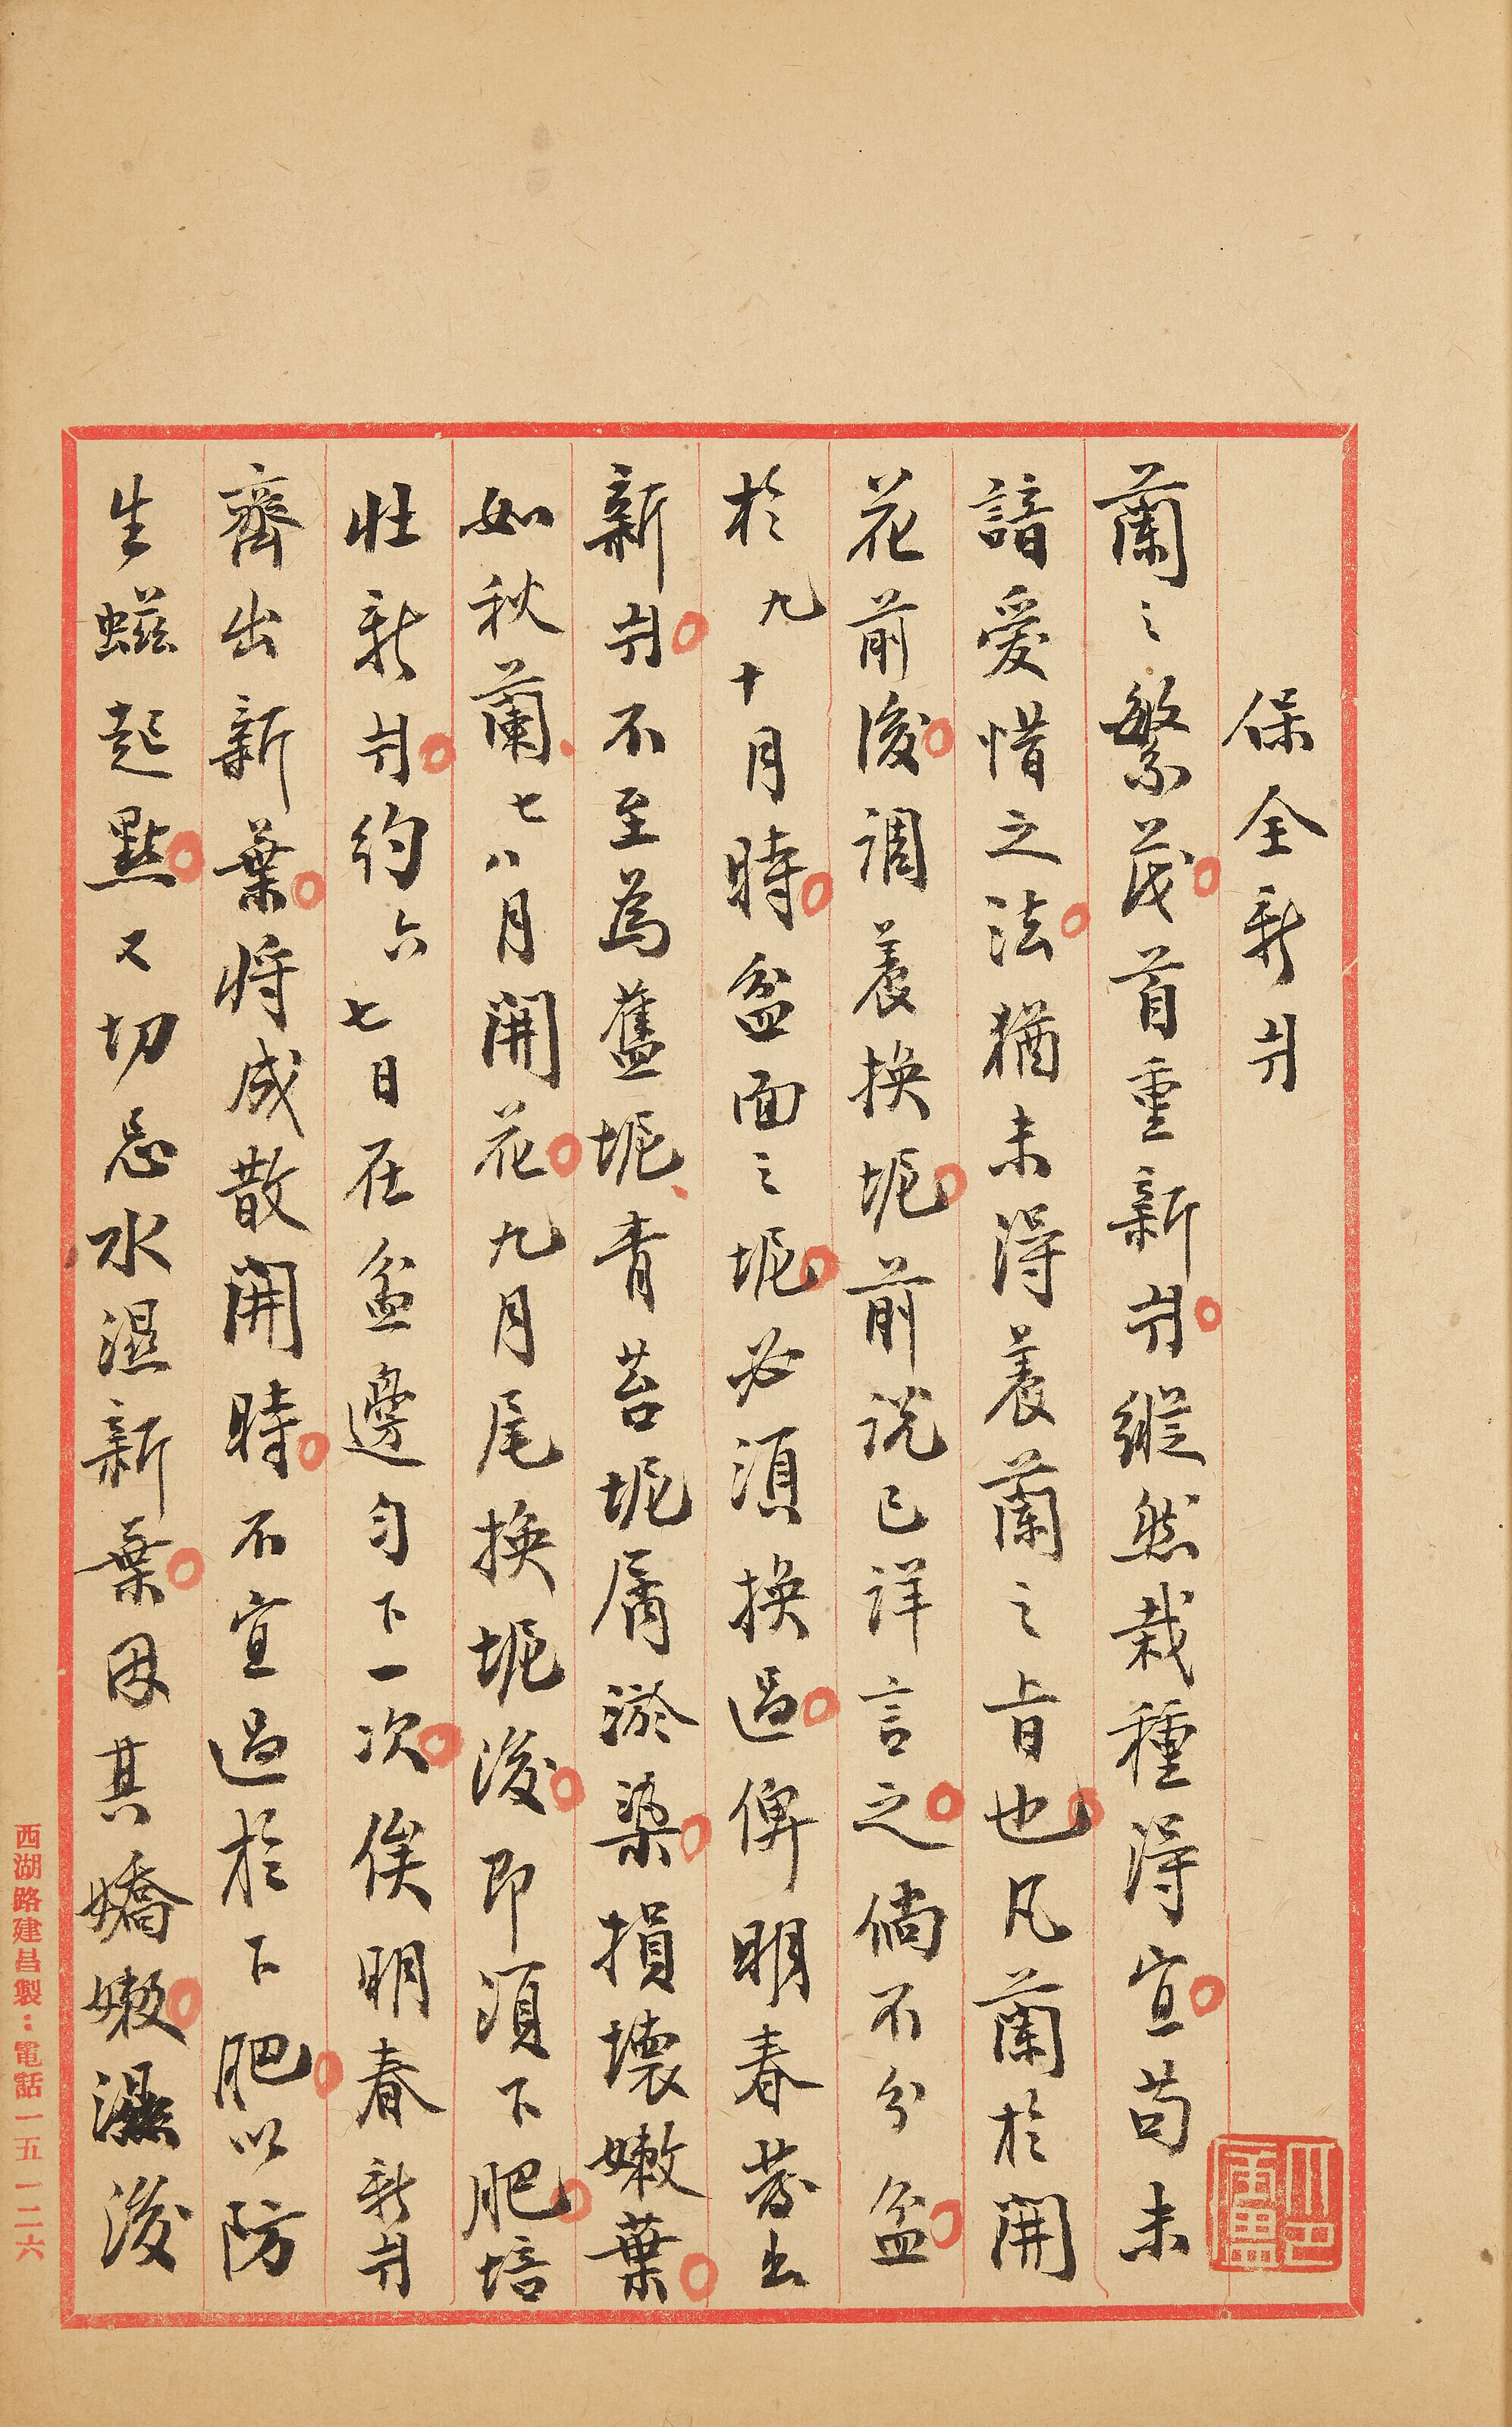 保全新
蘭之繁茂。首重新。縱然栽種得宜。苟未
諳愛惜之法。猶未得養蘭之旨也。凡蘭於開
花前後。調養換坭。前說已詳言之。倘不分盆。
於九十月時。盆面之坭。必須換過。俾明春發出
新。不至為舊坭、青苔坭屑淤染。損壞嫩葉。
如秋蘭、七八月開花。九月尾換坭後。即須下肥。培
壯新。約六七日在盆邊勻下一次。俟明春新
齊出新葉。將成散開時。不宜過於下肥。以防
生螆起點。又切忌水濕新葉。因其嬌嫩。濕後
西湖路建昌製：電話一五一二六